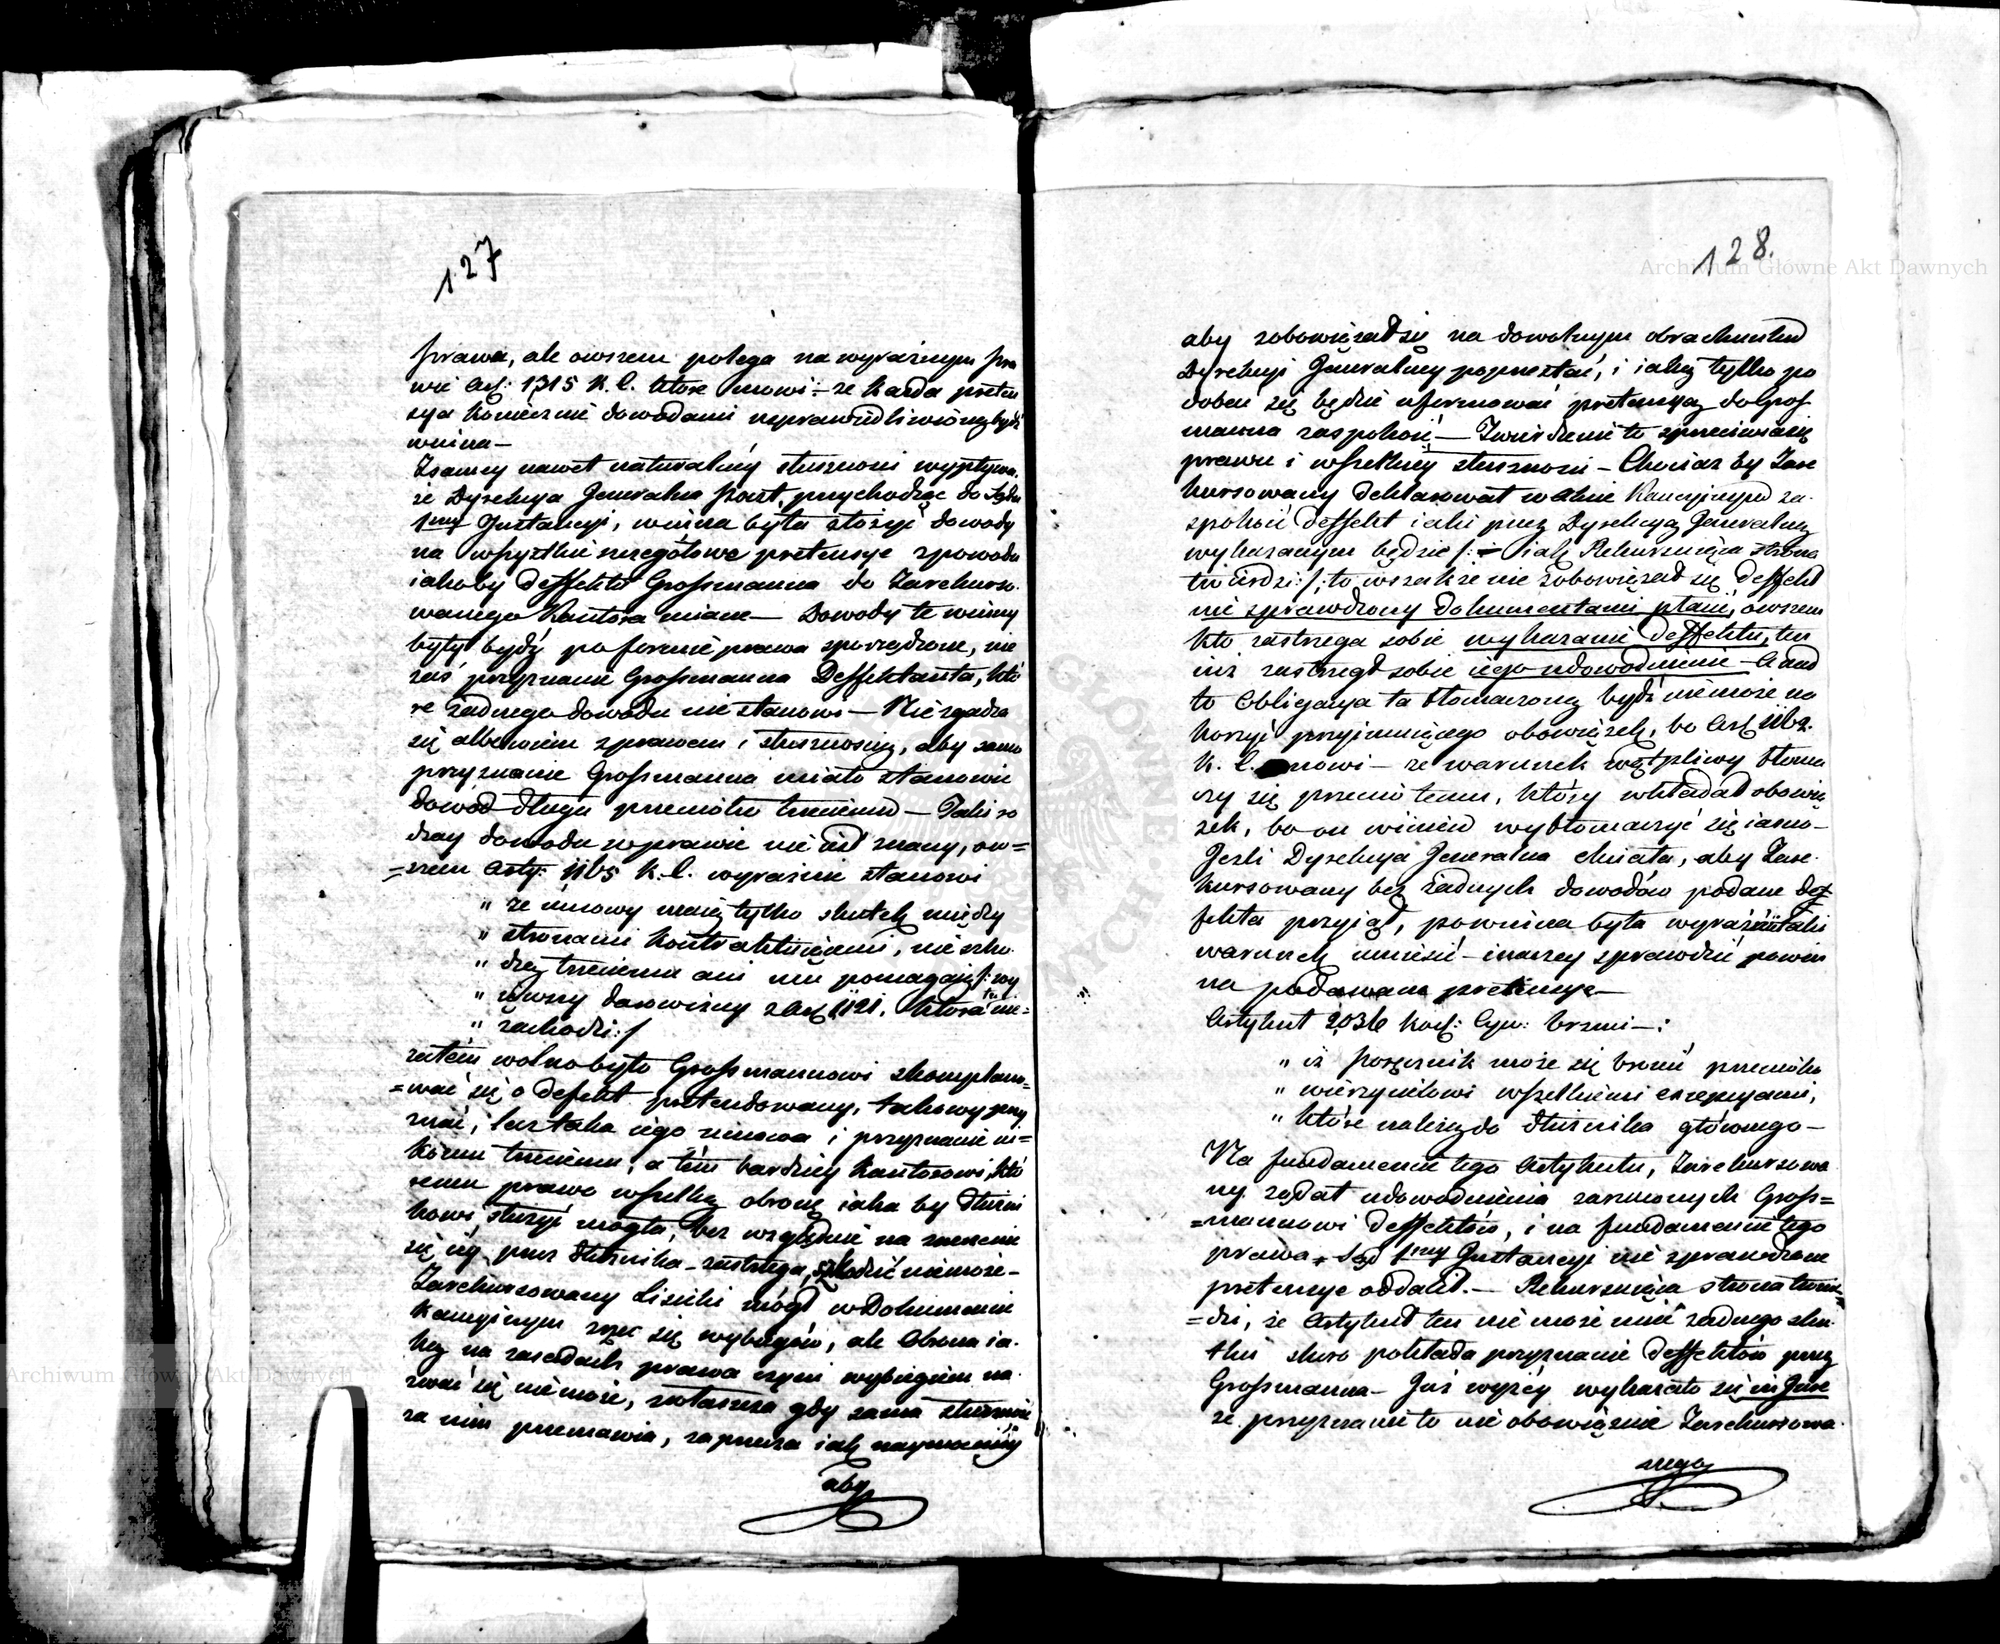 127
prawa, ale owszem polega na wyraźnym pra
wie Art: 1315 K. C. ktore mowi:- że każda preten
sya koniecznie dowodami usprawiedliwioną bydź
winna—
Zsamey nawet naturalnéy słuszności wypływa,
że Dyrekcya Generalna Poczt, przychodząc do Sądu
1wszy Instancyi, winna była złożyć dowody
na wszystkie szczegółowe pretensye z powodu
iakoby deffektu Grossmanna do Zarekurso
wanego Kantora miane— Dowody te winny
były bydź po formie prawa sporządzone, nie
zaś przyznanie Grossmanna Deffektanta, któ
re żadnego dowodu nie stanowi— Nie zgadza
się albowiem z prawem i słusznością, aby samo
przyznanie Grossmanna miało stanowić
dowód długu przeciwko trzeciemu— Taki ro
dzay dowodu w prawie nie iest znany, ow=
=szem Arty: 1165 K. C. wyraźnie stanowi
" że umowy maią tylko skutek między
" stronami kontraktuiącemi, nie szko
" dzą trzeciemu ani mu pomagaią /: wy
" iąwszy darowizny z Art 1121. która tu nie=
" zachodzi :/
zatém wolno było Grossmannowi skomplano=
=wać się o defekt pretendowany, takowy przy
znać, lecz taka iego umowa i przyznanie ni=
komu trzeciemu, a tém bardziéy Kantorowi, któ
remu prawo wszelką obronę iaka by dłużni
kowi służyć mogła, bez względu na zrzeczenie
się iéy przez dłużnika — zastrzega, szkodzić niemoże—
Zarekursowany Lisicki mógł w Dokumencie
Kaucyinym zrzec się wybiegów, ale Obrona ia
ką na zasadach prawa czyni wybiegiem na
zwać się nie może, zwłaszcza gdy sama słuszność
za nim przemawia, zaprzecza iak naymocniéy
aby
128.
aby zobowiązał się na dowolnym obrachunku
Dyrekcyi Generalnéy poprzestać, i iaką tylko po
doba się będzie uformować pretensyą do Gros
manna zaspokoić— Twierdzenie to sprzeciwia się
prawu i wszelkiéy słuszności— Chociaż by Zare
kursowany deklarował w akcie Kaucyinym za
spokoić deffekt iaki przez Dyrekcyą Generalną
wykazanym będzie /: iak Rekursuiąca strona
twierdzi :/ to wszakże nie zobowiązał się deffekt
nie sprawdzony dokumentami płacić, owszem
kto zastrzega sobie wykazanie deffektu, ten
iuż zastrzegł sobie iego udowodnienie— A nad
to Obligacya ta tłomaczoną bydź nie może na
korzyść przyimuiącego obowiązek, bo Art 1162.
K. C. mowi— że warunek wątpliwy tłoma
czy się przeciw temu, który wkładał obowią
zek, bo on winien wytłomaczyć się iasno—
Jeśli Dyrekcya Generalna chciała, aby Zare
kursowany bez żadnych dowodów podane def
fekta przyiął, powinna była wyraźnie taki
warunek umieścić— inaczéy sprawdzić powin
na podawane pretensye—
Artykuł 2036 Kod: Cyw: brzmi—:
" iż poręcznik może się bronić przeciwko
" wierzycielowi wszelkiemi excepcyami,
" które należą do dłużnika głównego—
Na fundamencie tego Artykułu, Zarekursowa
ny żądał udowodnienia zarzuconych Gross=
=mannowi deffektów, i na fundamencie tego
prawa, Sąd 1wszy Instancyi nie sprawdzone
pretensye oddalił.— Rekursuiąca strona twier
=dzi, że Artykuł ten nie może mieć żadnego sku
tku skoro pokłada przyznanie deffektów przez
Grossmanna— Już wyżéy wykazało się in Jure
że przyznanie to nie obowiązuie Zarekursowa
nego